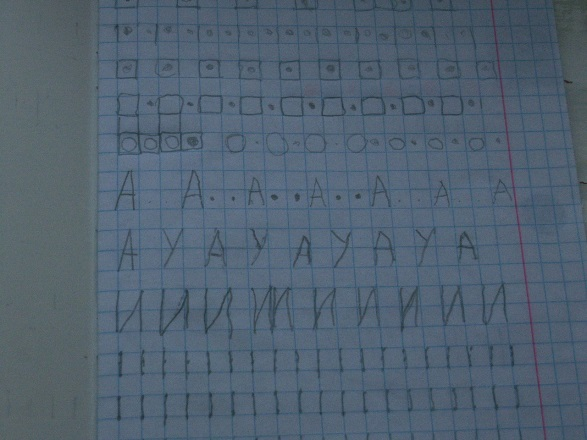 А А А А А А А
А У А У А У А У А
И И И И И И И И И